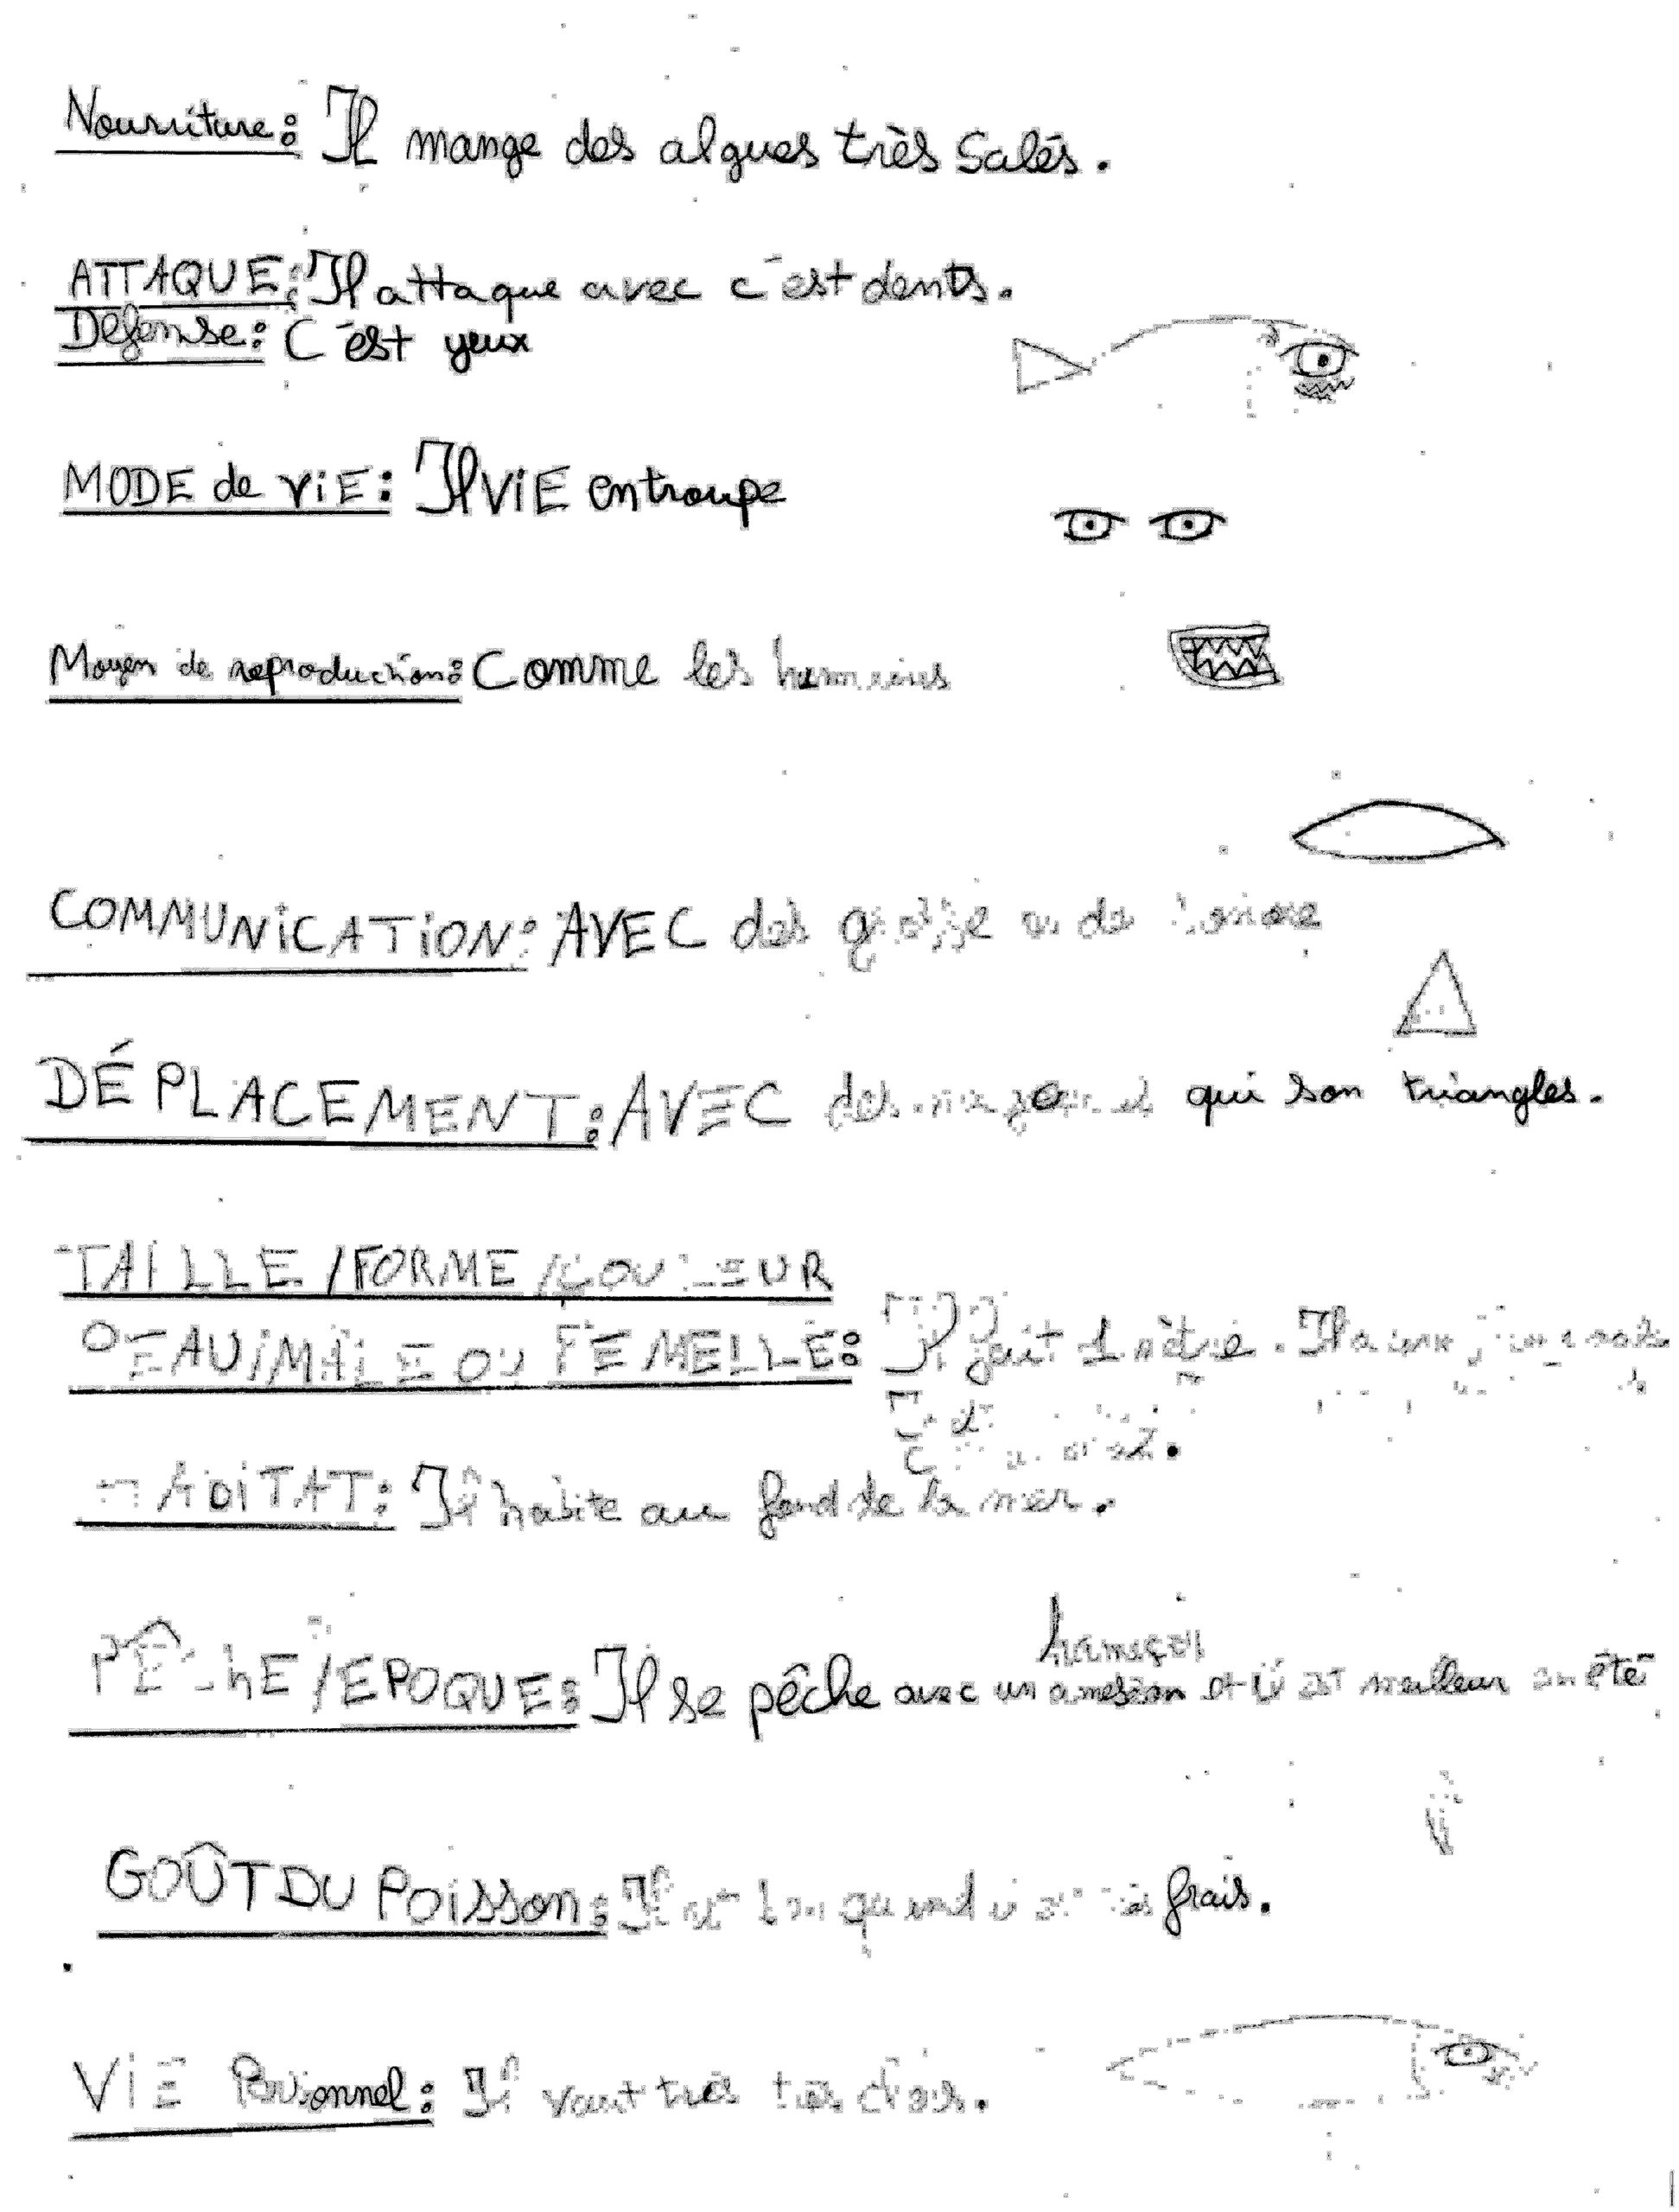 Nourriture: Il mange des algues très salés.
ATTAQUE: Il attaque avec c'est dents.
Défense: C'est yeux
MODE de ViE: Il ViE en troupe
Moyen de reproduction: Comme les humains
COMMUNiCATiON: AVEC des
DÉPLACEMENT: AVEC des qui son triangles.
TAiLLE /FORME /COULEUR
PEAU/MÂLE OU FEMELLE: Il fait 1 mètre. Il a une
HABiTAT: Il habite au fond de la mer.
hameçon
PÊChE /EPOQUE: Il se pêche avec un ameson et il est meilleur en été
GOÛT DU Poisson: Il est bon quand il est très frais.
ViE Personnel: Il vaut très très cher.